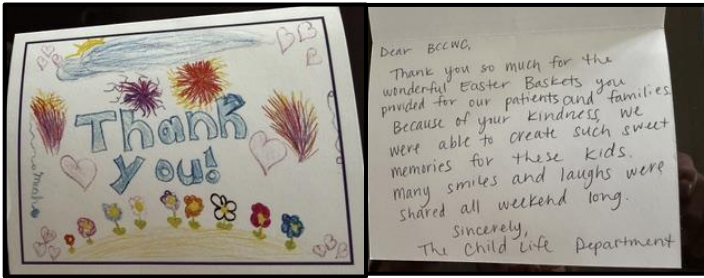 Thank
you!
Dear BCCWC,
Thank you so much for the
wonderful Easter Baskets you
provided for our patients and families.
Because of your kindness we
were able to create such sweet
memories for these kids.
many smiles and laughs were
shared all weekend long.
Sincerely,
The Child Life Department